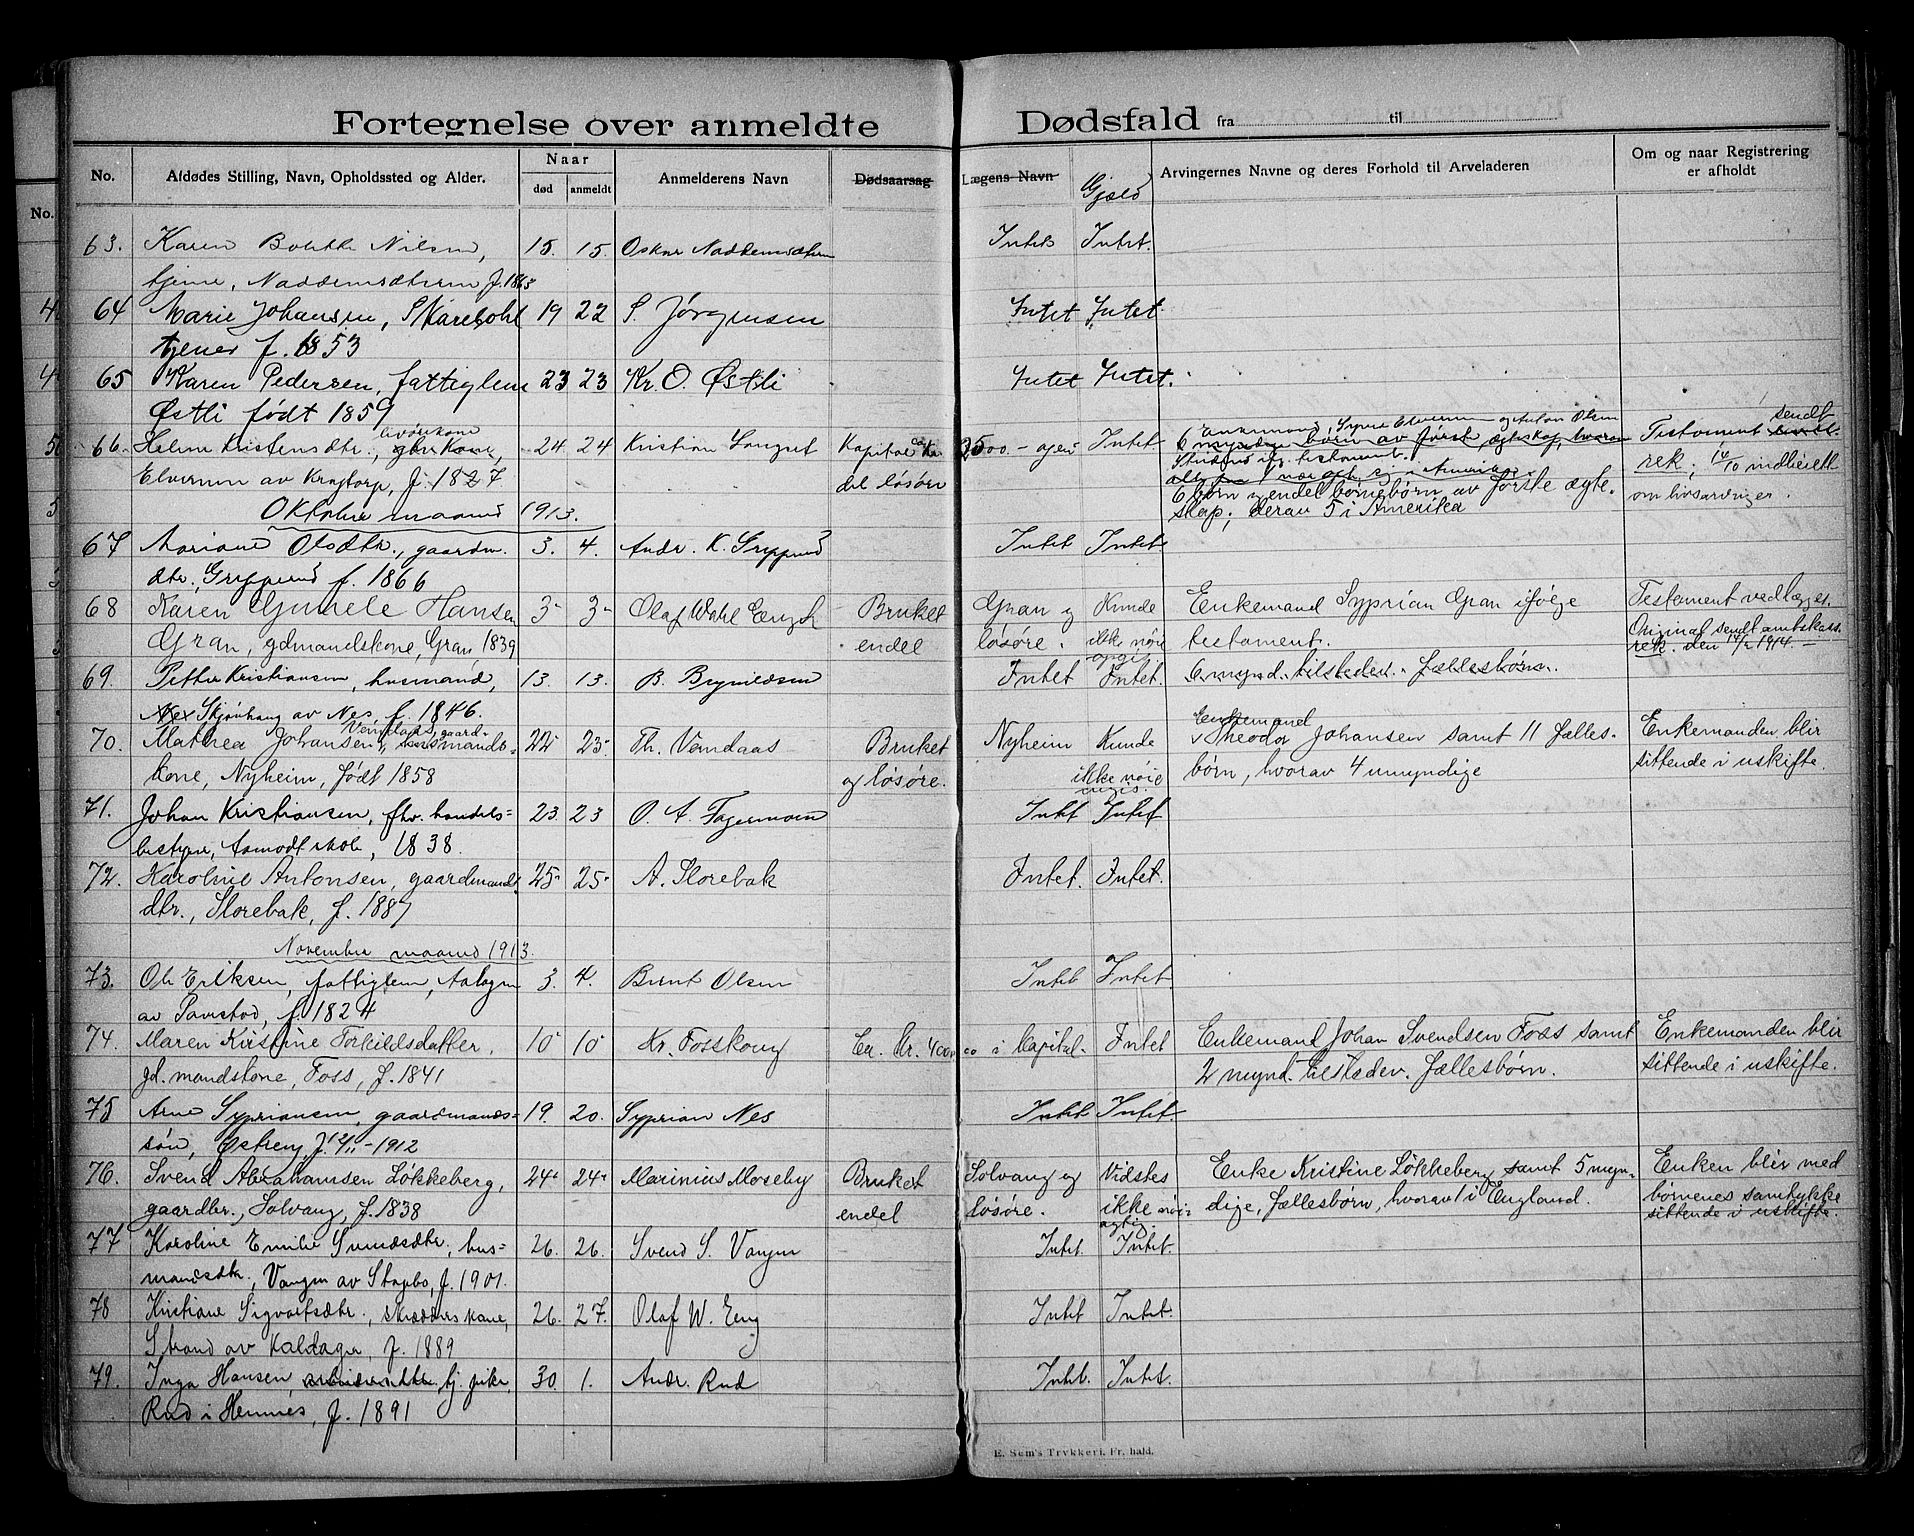 Fortegnelse over anmeldte Dødsfald fra til
No. Afdødes Stilling, Navn, Opholdssted og Alder. Naar Anmelderens Navn Dødsaarsag Lægens Navn Gjæld Arvingernes Navne og deres Forhold til Arveladeren Om og naar Registrering
død anmeldt er afholdt
No.
63. Karen Nilsen, 15. 15. Oskar Intet Intet.
f. 1863
64 Marie Johansen, 19 22 S. Jørgensen Intet Intet.
tjener f. 1853
65 Karen Pedersen, fattiglem 23 23 Kr. O. Østli Intet Intet.
Østli født 1859
livørekone
66. Helene Kristensdtr., gbr. Kone, 24. 24 Kristian Kapital 2500.- og en Intet. 6 myndige børn av først egteskap, hvorav Testament sendt
Elverum av Krogtorp, f. 1827 del løsøre ifg. testament. rek; 14/10 indberett
6 børn og endel børnebørn av første egte- om livsarvinger.
skap; derav 5 i Amerika
Oktober maaned 1913.
67 Mariane Olsdtr., gaardm. 3. 4. Andr. K. Gryperud Intet Intet
dtr., Gryperud f. 1866
68 Karen Gumele Hansen 3 3 Olaf Wahl Engh Bruket Gran og Kunde Enkemand Syprian Gran ifølge Testament vedlægges.
Gran, gdmandskone, Gran 1839 endel løsøre. ikke nøie testament. Original sendt amtskass.
opgis rek. den 14/2 1914.
69. Petter Kristiansen, husmand, 13. 13. B. Brynildsen Intet Intet. 6 mynd. tilstedev. fællesbørn.
Skjønhaug av Nes, f. 1846.
gaard- Enkemand
70. Mathea Johansen, husmands- 22 23 Th. Vendaas Bruket Nyheim Kunde Theodor Johansen samt 11 fælles- Enkemanden blir
kone, Nyheim, født 1858 og løsøre. ikke nøie børn, hvorav 4 umyndige sittende i uskifte.
71. Johan Kristiansen, fhv. handels- 23. 23 O. A. Fagermoen Intet Intet
bestyrer, Aamodt skole, 1838.
72. Karoline Antonsen, gaardmands 25 25 A. Slorebak Intet. Intet.
dtr., Slorebak, f. 1887
November maaned 1913.
73. Ole Eriksen, fattiglem, 3. 4. Bernt Olsen Intet Intet
av f. 1824
74. Maren Kirstine Torkildsdatter, 10 10 Kr. Fosskoug Ca. Kr. 4000 00 i kapital. Intet Enkemand Johan Svendsen Foss samt Enkemanden blir
gd.mandskone, Foss, f. 1841 2 mynd. tilstedev. fællesbørn. sittende i uskifte.
75 Arne Sypriansen, gaardmands- 19. 20. Syprian Nes Intet Intet.
søn, Østreng, f. 12/11-1912
76. Svend Abrahamsen Løkkeberg, 24 24 Marinius Moseby Bruket Solvang og Vidstes Enke Kristine Løkkeberg samt 5 myn- Enken blir med
gaardbr., Solvang, f. 1838 endel løsøre. ikke nøi- dige, fællesbørn, hvorav 1 i England. børnenes samtykke
agtig. sittende i uskifte.
77 Karoline Emilie Svendsdtr., hus- 26. 26. Svend S. Vangen Intet. Intet.
mandsdtr., Vangen av Stapbo, f. 1901.
78 Kristiane Sigvartsdtr., skrædders kone, 26. 27. Olaf W. Eng Intet Intet.
Strand av Kaldager, f. 1889
79. Inga Hansen, tj. pike, 30. 1. Andr. Rud Intet. Intet.
Rud i Hemnes, f. 1891
E. Sem's Trykkeri, Fr. hald.